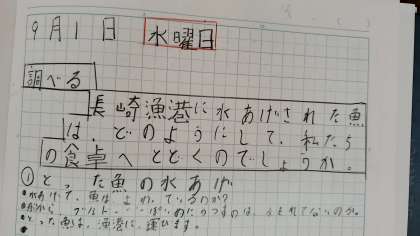 9月1日 水曜日
調べる
長崎漁港に水あげされた魚
は、どのようにして、私たち
の食卓へとどくのでしょうか。
①とった魚の水あげ
水あげ、魚は よ れ ているのか?
のは、うまれてないのか。
とった魚は、漁港に、運びます。